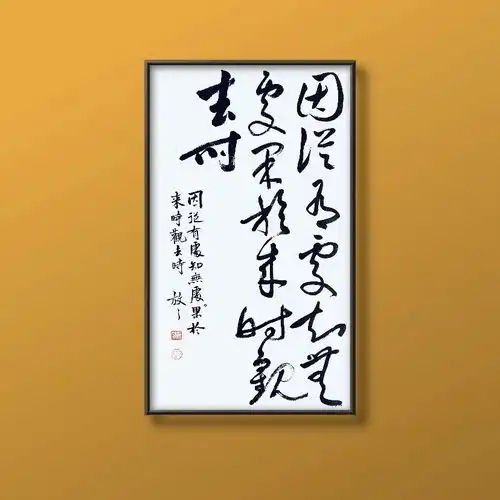 因從有處知無
處果於來時觀
去時
因從有處知無處。果於
來時觀去時